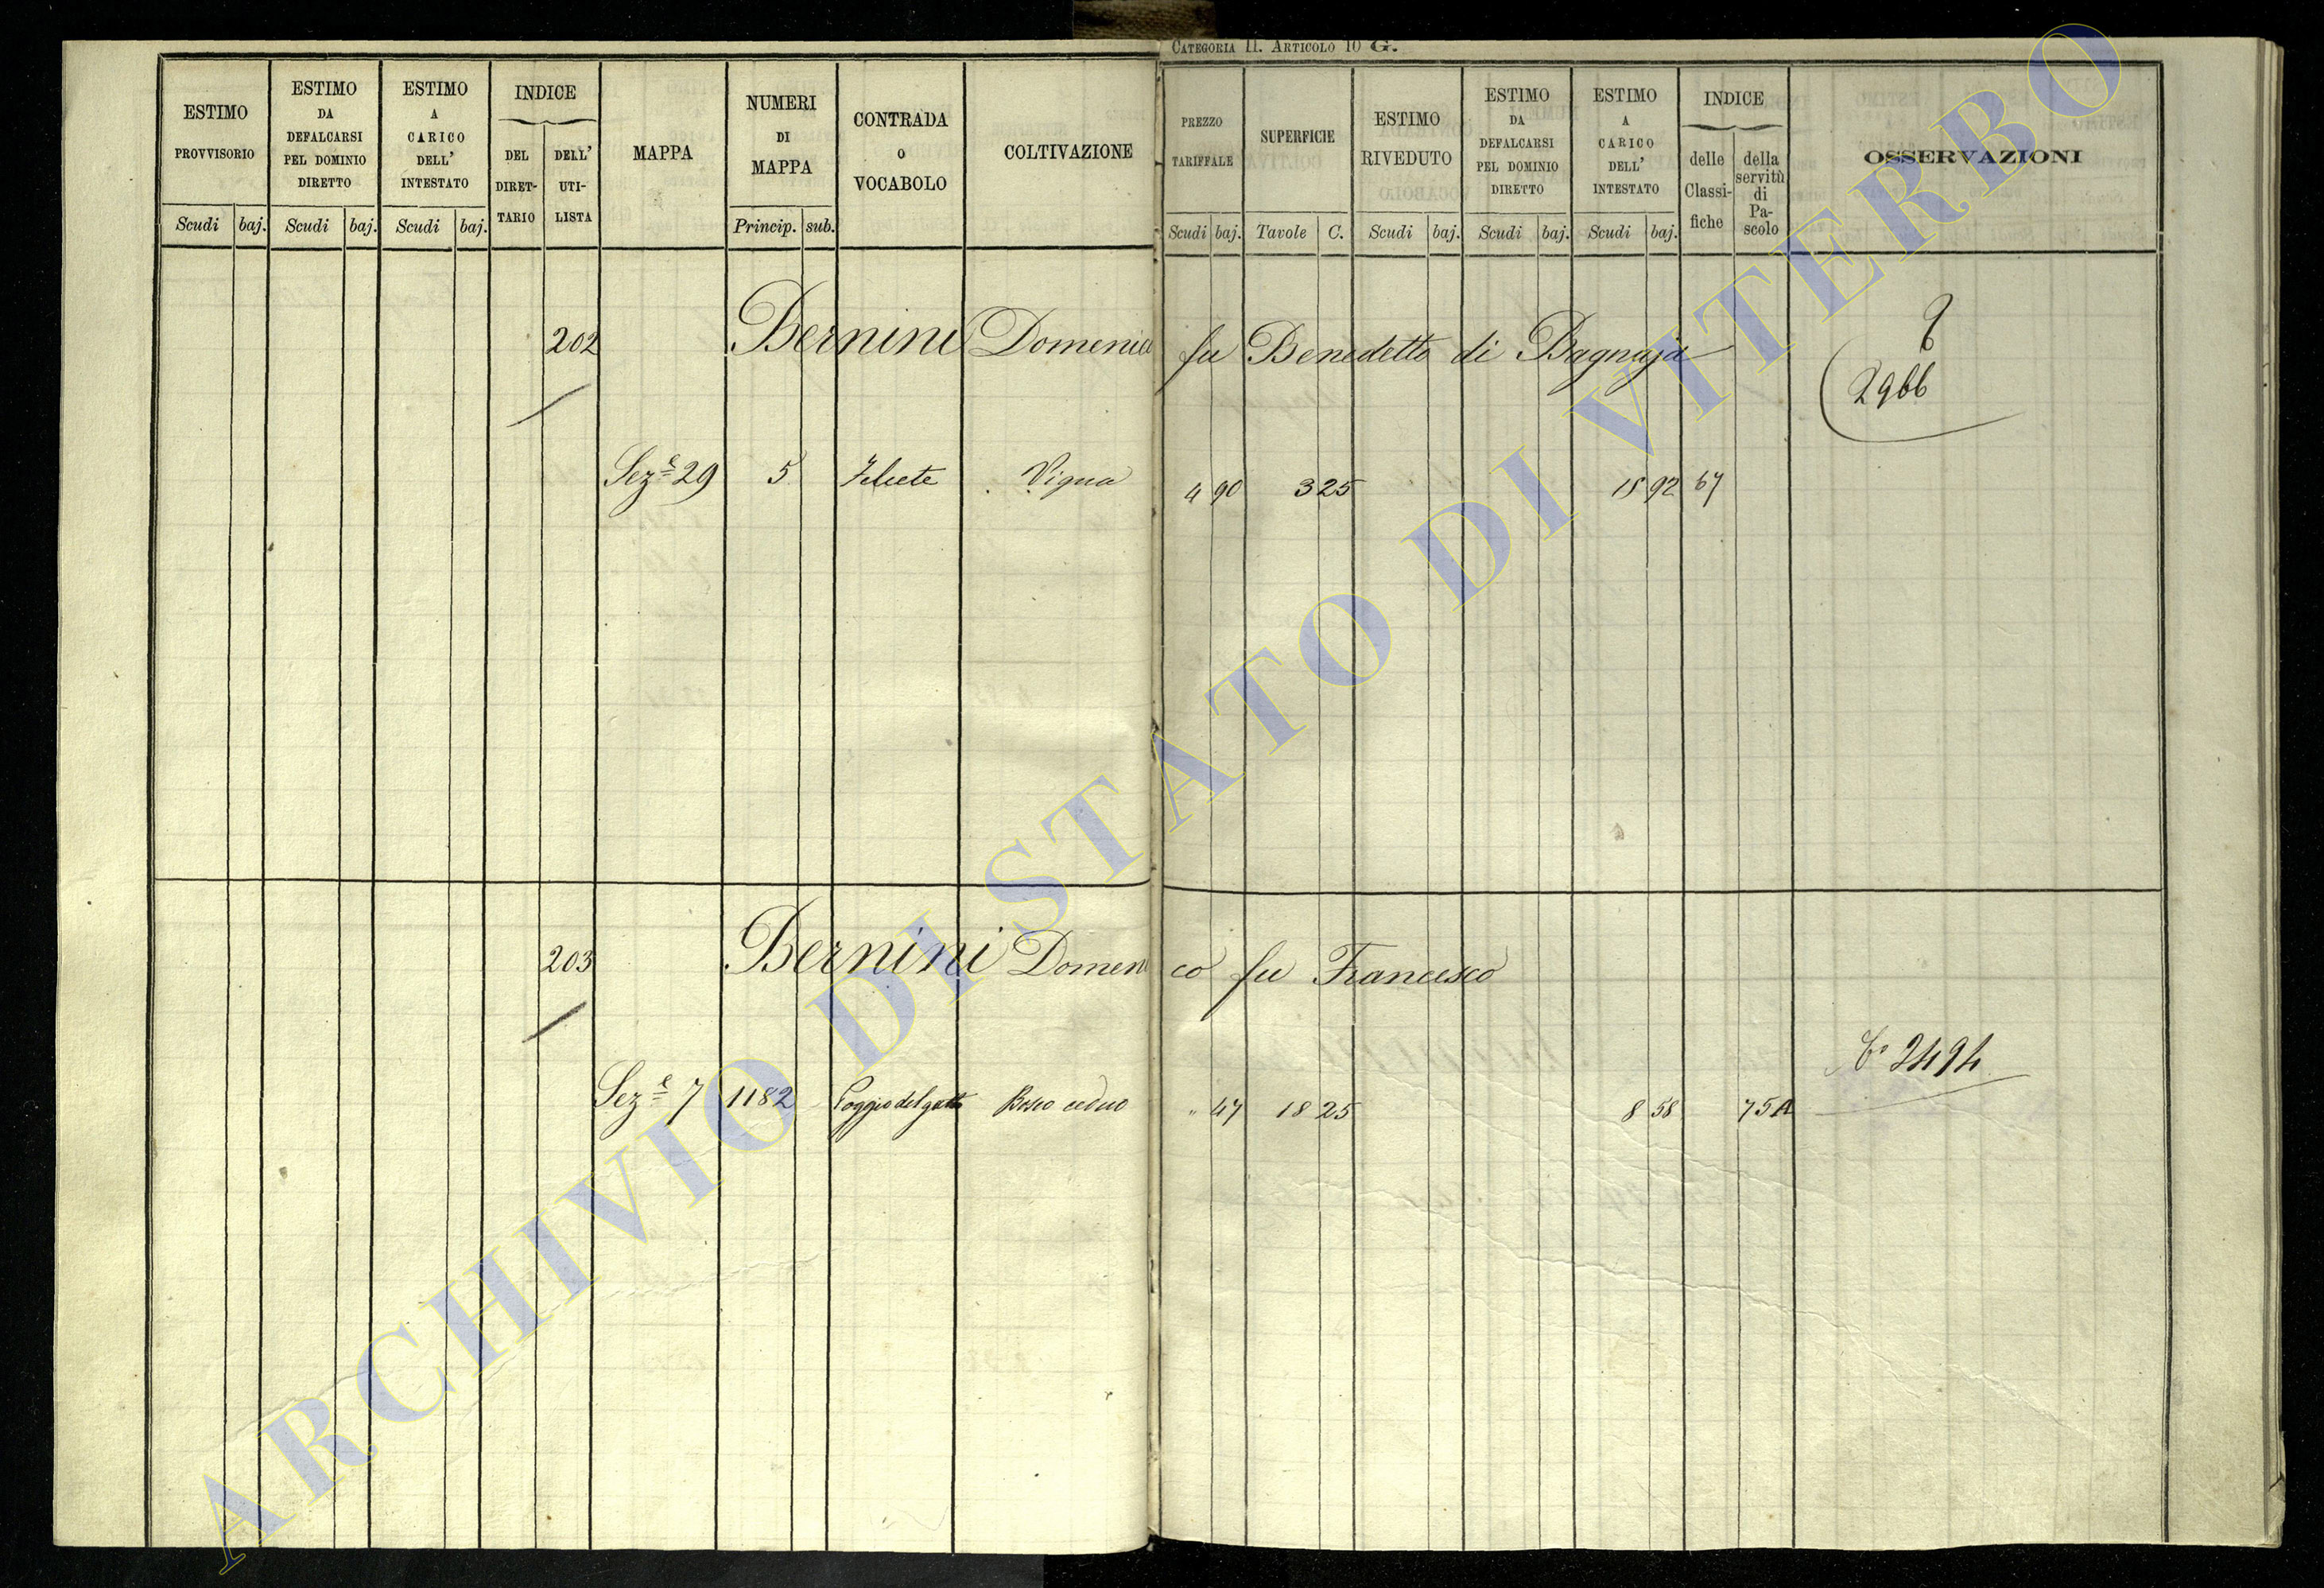 CATEGORIA II. ARTICOLO 10 G.
ESTIMO PROVVISORIO
Scudi baj.
ESTIMO DA DEFALCARSI PEL DOMINIO DIRETTO
Scudi baj.
ESTIMO A CARICO DELL' INTESTATO
Scudi baj.
INDICE
DEL DIRET-TARIO
DELL' UTI-LISTA
MAPPA
NUMERI DI MAPPA
Princip. sub.
CONTRADA O VOCABOLO
COLTIVAZIONE
PREZZO TARIFFALE
Scudi baj.
SUPERFICIE
Tavole C.
ESTIMO RIVEDUTO
Scudi baj.
ESTIMO DA DEFALCARSI PEL DOMINIO DIRETTO
Scudi baj.
ESTIMO A CARICO DELL' INTESTATO
Scudi baj.
INDICE
delle Classi-fiche
della servitù di Pa-scolo
OSSERVAZIONI
202 Bernini Domenico fu Benedetto di Bagnaja
2966
Sez.e 29 5 Vigna 4 90 3 25 18 92 67
203 Bernini Domenico fu Francesco
2494
Sez.e 7 1182 Poggio del gatto Bosco ceduo " 47 18 25 8 58 75A
ARCHIVIO DI STATO DI VITERBO